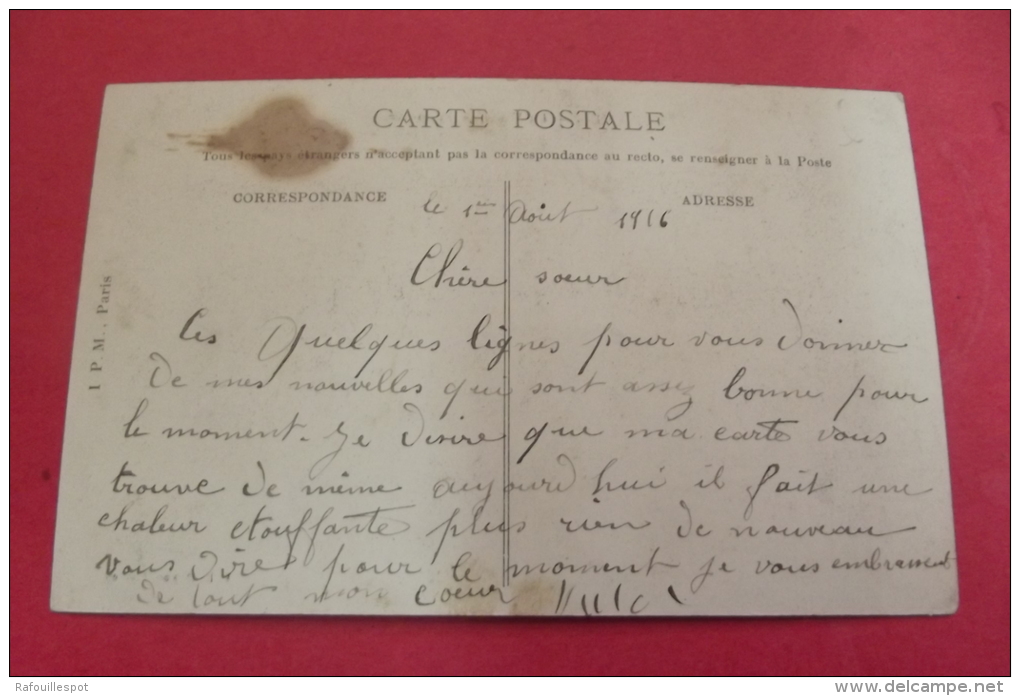 CARTE POSTALE
Tous les pays étrangers n'acceptant pas la correspondance au recto, se renseigner à la Poste
CORRESPONDANCE
ADRESSE
le 1er Aout 1916
Chère soeur
Ces Quelques lignes pour vous donner
de mes nouvelles qui sont assez bonne pour
le moment. Je désire que ma carte vous
trouve de même aujourd hui il fait une
chaleur etouffante plus rien de nouveau
vous dire pour le moment je vous embrassent
de tout mon coeur
I P. M., Paris
Rafouillespot
www.delcampe.net